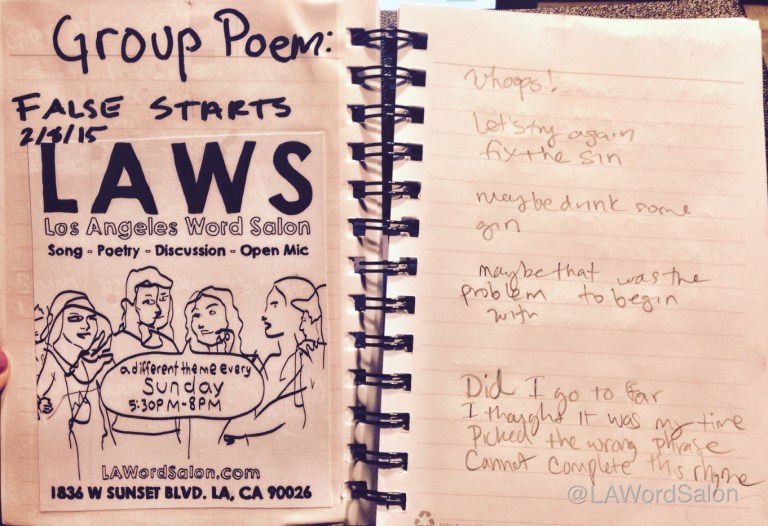 Group Poem:
FALSE STARTS
2/8/15
LAWS
Los Angeles Word Salon
Song - Poetry - Discussion - Open Mic
a different theme every
Sunday
5:30PM-8PM
LAWordSalon.com
1836 W SUNSET BLVD. LA, CA 90026
Whoops!
Let's try again
fix the sin
maybe drink some
gin
maybe that was the
problem to begin
with
Did I go to far
I thought it was my time
Picked the wrong phrase
Cannot complete this rhyme
@LAWordSalon